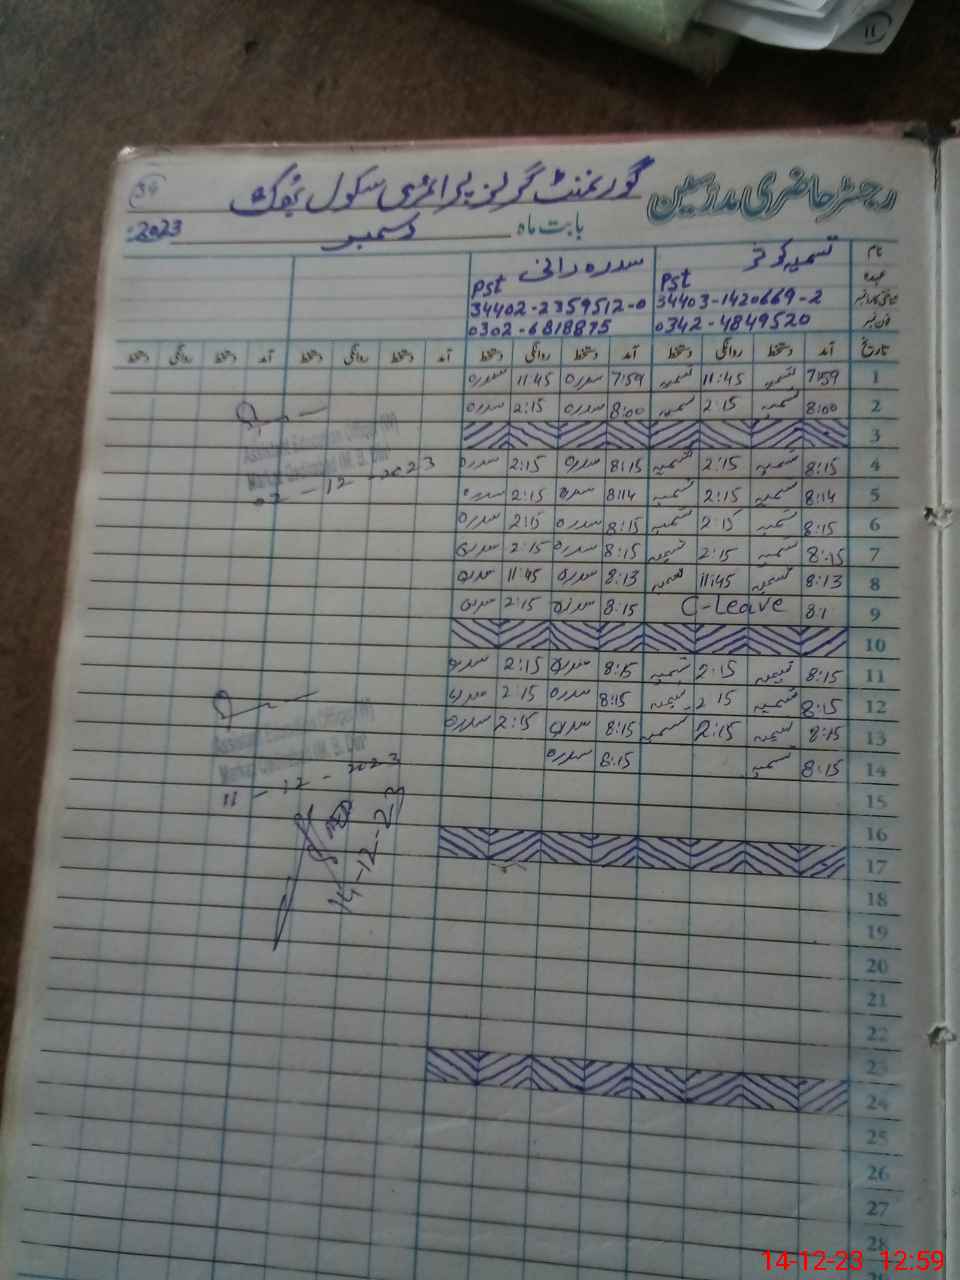 11
رجسٹر حاضری مدرسین گورنمنٹ گرلز پرائمری سکول 39
بابت ماہ دسمبر 2023ء
نام تسمیہ کوثر سدرہ رانی
عہدہ Pst Pst
34403-1420669-2 34402-2359512-0
فون نمبر 0342-4849520 0302-6818875
تاریخ آمد دستخط روانگی دستخط آمد دستخط روانگی دستخط آمد دستخط روانگی دستخط آمد دستخط روانگی دستخط
1 7:59 تسمیہ 11:45 تسمیہ 7:59 سدرہ 11:45 سدرہ
2 8:00 تسمیہ 2:15 تسمیہ 8:00 سدرہ 2:15 سدرہ
3
4 8:15 تسمیہ 2:15 تسمیہ 8:15 سدرہ 2:15 سدرہ
5 8:14 تسمیہ 2:15 تسمیہ 8:14 سدرہ 2:15 سدرہ
6 8:15 تسمیہ 2:15 تسمیہ 8:15 سدرہ 2:15 سدرہ
7 8:15 تسمیہ 2:15 تسمیہ 8:15 سدرہ 2:15 سدرہ
8 8:13 تسمیہ 11:45 تسمیہ 8:13 سدرہ 11:45 سدرہ
9 8:1 C-Leave 8:15 سدرہ 2:15 سدرہ
10
11 8:15 تسمیہ 2:15 تسمیہ 8:15 سدرہ 2:15 سدرہ
12 8:15 تسمیہ 2:15 تسمیہ 8:15 سدرہ 2:15 سدرہ
13 8:15 تسمیہ 2:15 تسمیہ 8:15 سدرہ 2:15 سدرہ
14 8:15 تسمیہ 8:15 سدرہ
15
16
17
18
19
20
21
22
23
24
25
26
27
28
Assistant Education Officer (W)
02-12-2023
Assistant Education Officer (W)
11-12-2023
14-12-23
14-12-23 12:59